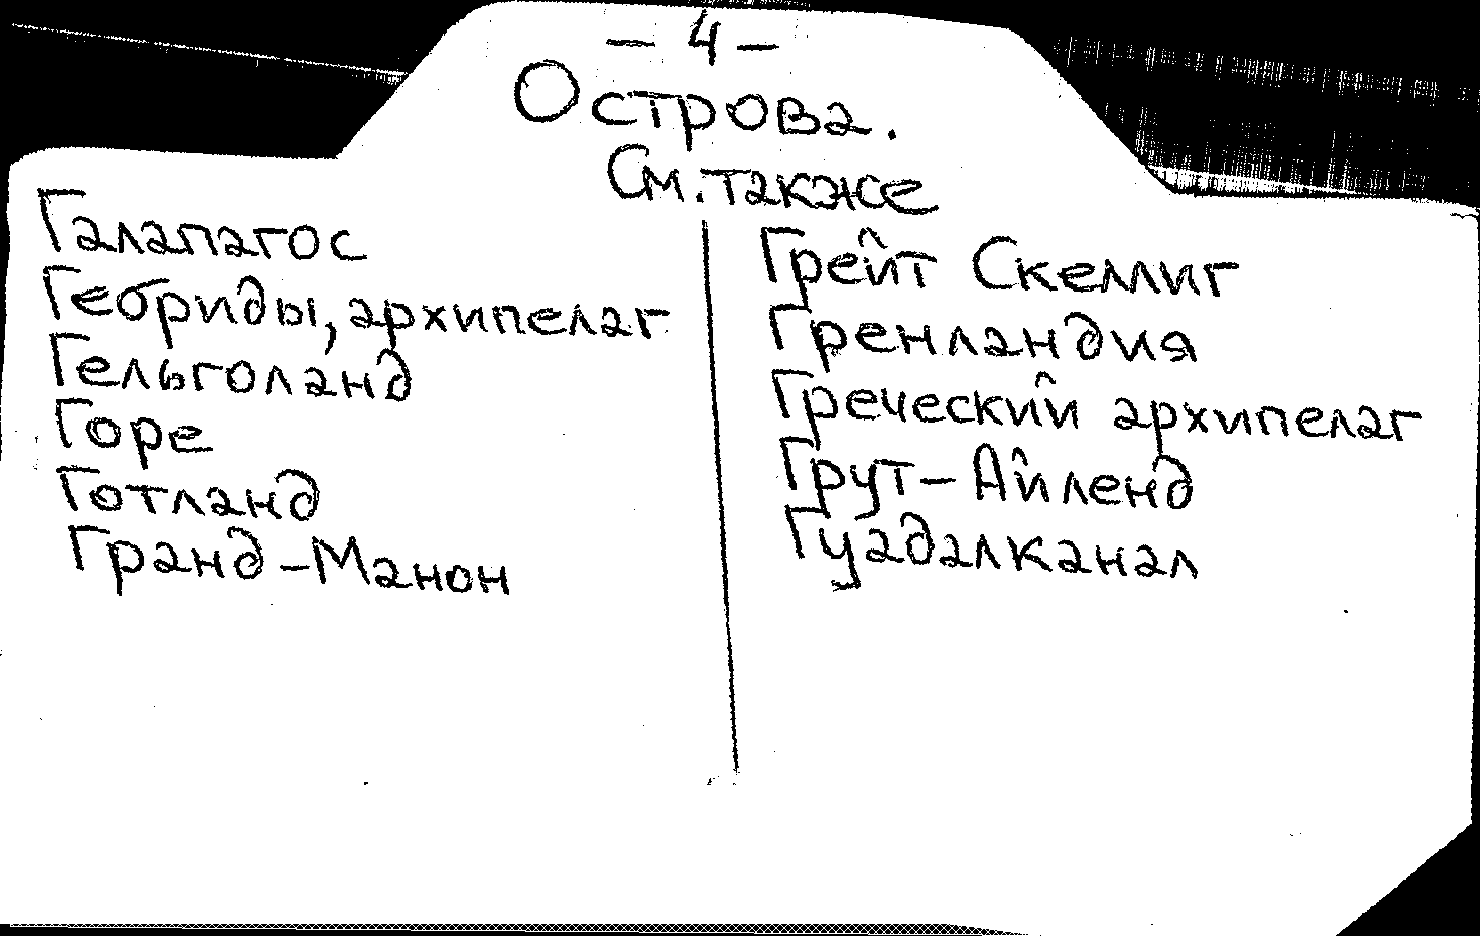 — 4 —
Острова.
См. также
Галапагос
Гебриды, архипелаг
Гельголанд
Горе
Готланд
Гранд-Манон
Грейт Скеллиг
Гренландия
Греческий архипелаг
Грут-Айленд
Гуадалканал